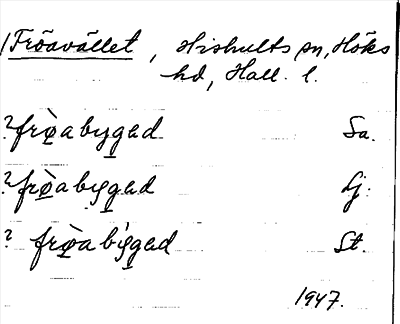 /Fröavället, Hishults sn, Höks
hd, Hall. l.
? frø̀abygәd Sa.
? frø̀abygәd Lj.
? frø̀abýgәd St.
1947.